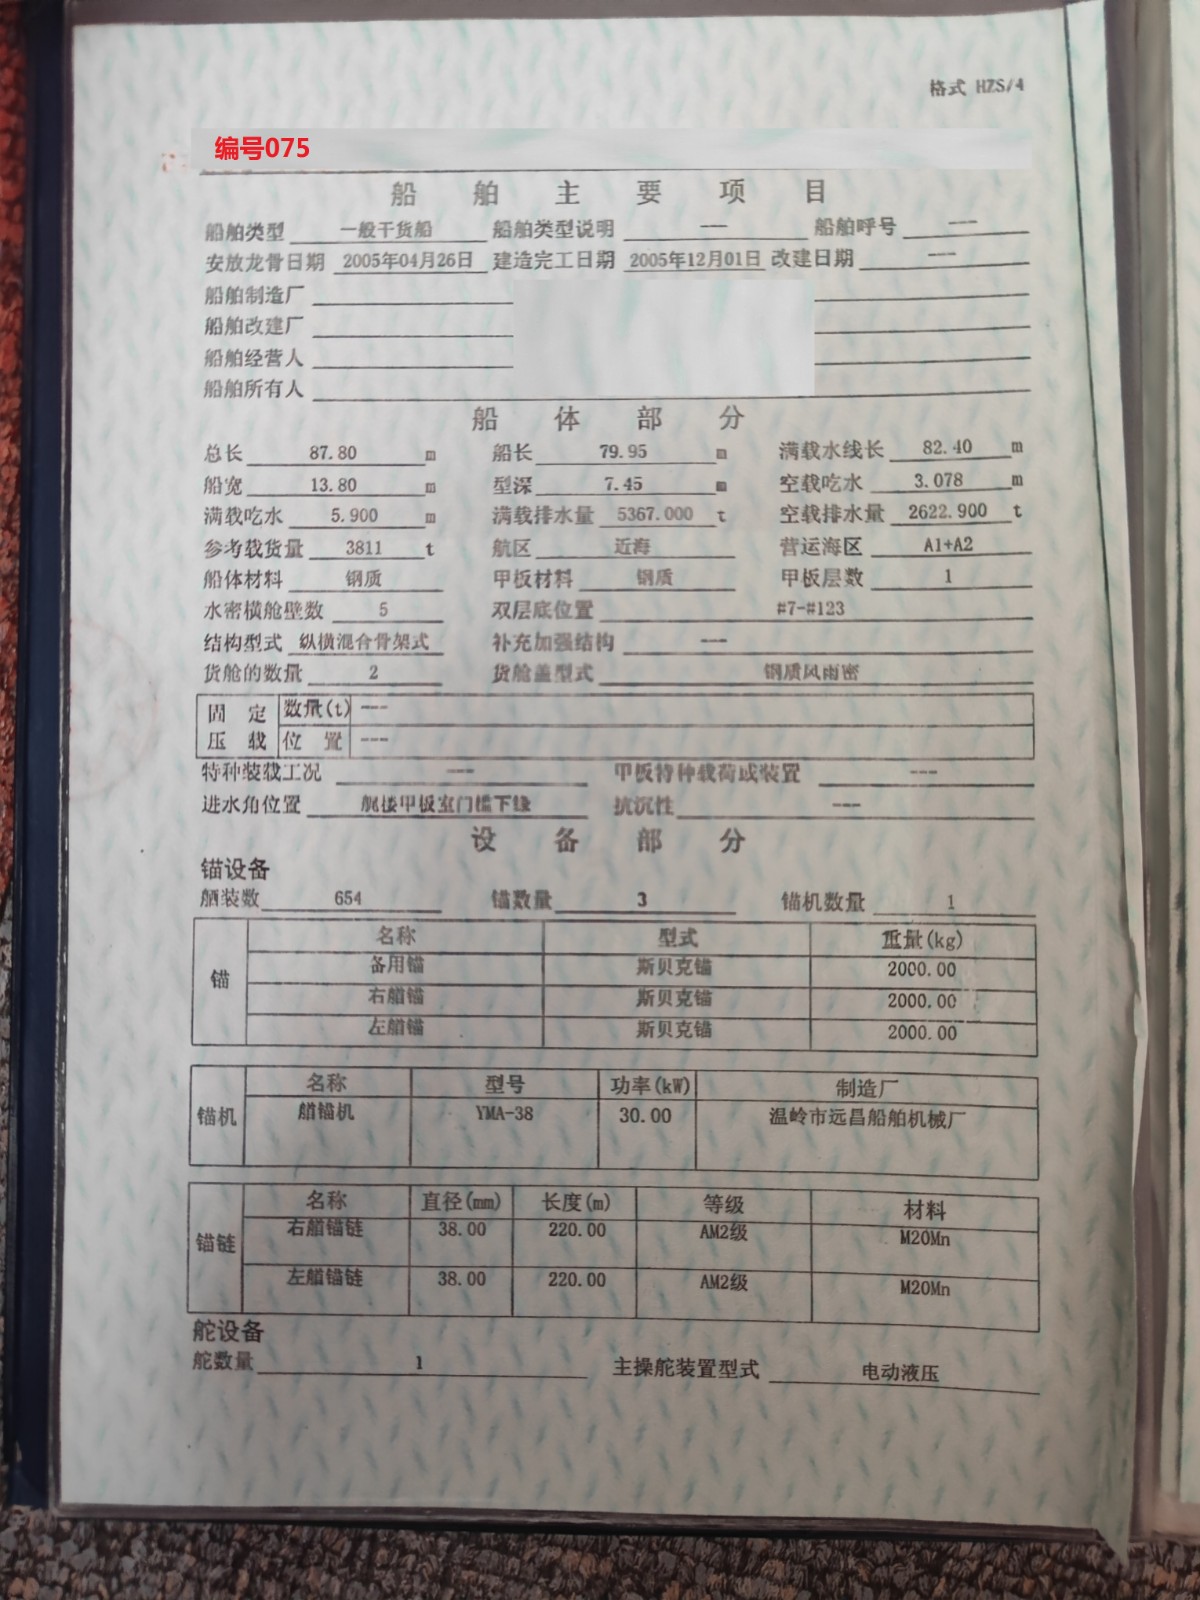 格式 HZS/4
编号075
船舶主要项目
船舶类型 一般干货船 船舶类型说明 --- 船舶呼号 ---
安放龙骨日期 2005年04月26日 建造完工日期 2005年12月01日 改建日期 ---
船舶制造厂
船舶改建厂
船舶经营人
船舶所有人
船体部分
总长 87.80 m 船长 79.95 m 满载水线长 82.40 m
船宽 13.80 m 型深 7.45 m 空载吃水 3.078 m
满载吃水 5.900 m 满载排水量 5367.000 t 空载排水量 2622.900 t
参考载货量 3811 t 航区 近海 营运海区 A1+A2
船体材料 钢质 甲板材料 钢质 甲板层数 1
水密横舱壁数 5 双层底位置 #7-#123
结构型式 纵横混合骨架式 补充加强结构 ---
货舱的数量 2 货舱盖型式 钢质风雨密
固定 数量(t) ---
压载 位置 ---
特种装载工况 --- 甲板特种载荷或装置 ---
进水角位置 艉楼甲板室门槛下缘 抗沉性 ---
设备部分
锚设备
舾装数 654 锚数量 3 锚机数量 1
名称 型式 重量(kg)
锚
备用锚 斯贝克锚 2000.00
右艏锚 斯贝克锚 2000.00
左艏锚 斯贝克锚 2000.00
名称 型号 功率(kW) 制造厂
锚机 艏锚机 YMA-38 30.00 温岭市远昌船舶机械厂
名称 直径(mm) 长度(m) 等级 材料
锚链
右艏锚链 38.00 220.00 AM2级 M20Mn
左艏锚链 38.00 220.00 AM2级 M20Mn
舵设备
舵数量 1 主操舵装置型式 电动液压